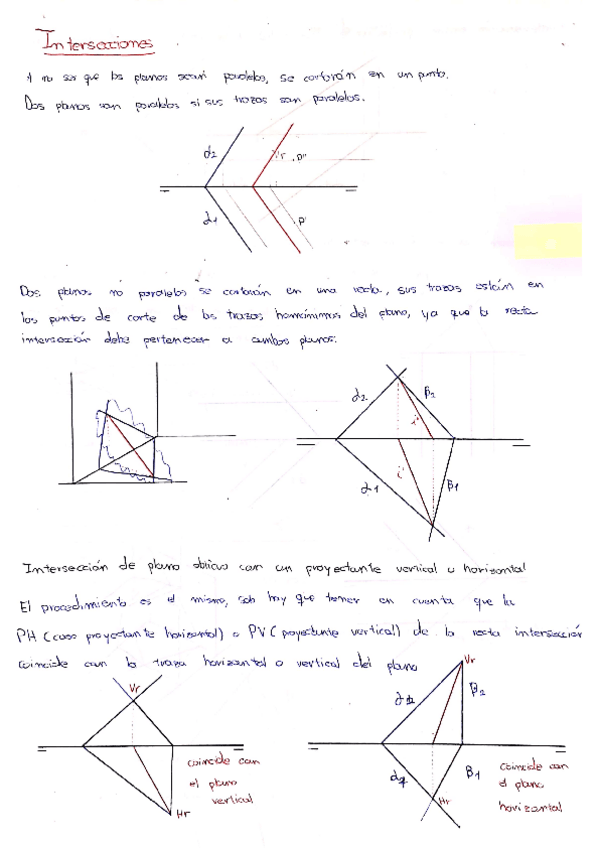 Intersecciones
A no ser que los planos sean paralelos, se cortarán en un punto.
Dos planos son paralelos si sus trazos son paralelos.
α2
Vr
P''
α1
P'
Dos planos no paralelos se cortarán en una recta, sus trazas están en
los puntos de corte de las trazas homónimas del plano, ya que la recta
intersección debe pertenecer a ambos planos:
α2
β2
i''
i'
α1
β1
Intersección de plano oblicuo con un proyectante vertical u horizontal
El procedimiento es el mismo, solo hay que tener en cuenta que la
PH (caso proyectante horizontal) o PV (proyectante vertical) de la recta intersección
coincide con la traza horizontal o vertical del plano
Vr
coincide con
el plano
vertical
Hr
Vr
β2
β1
Hr
Coincide con
el plano
horizontal